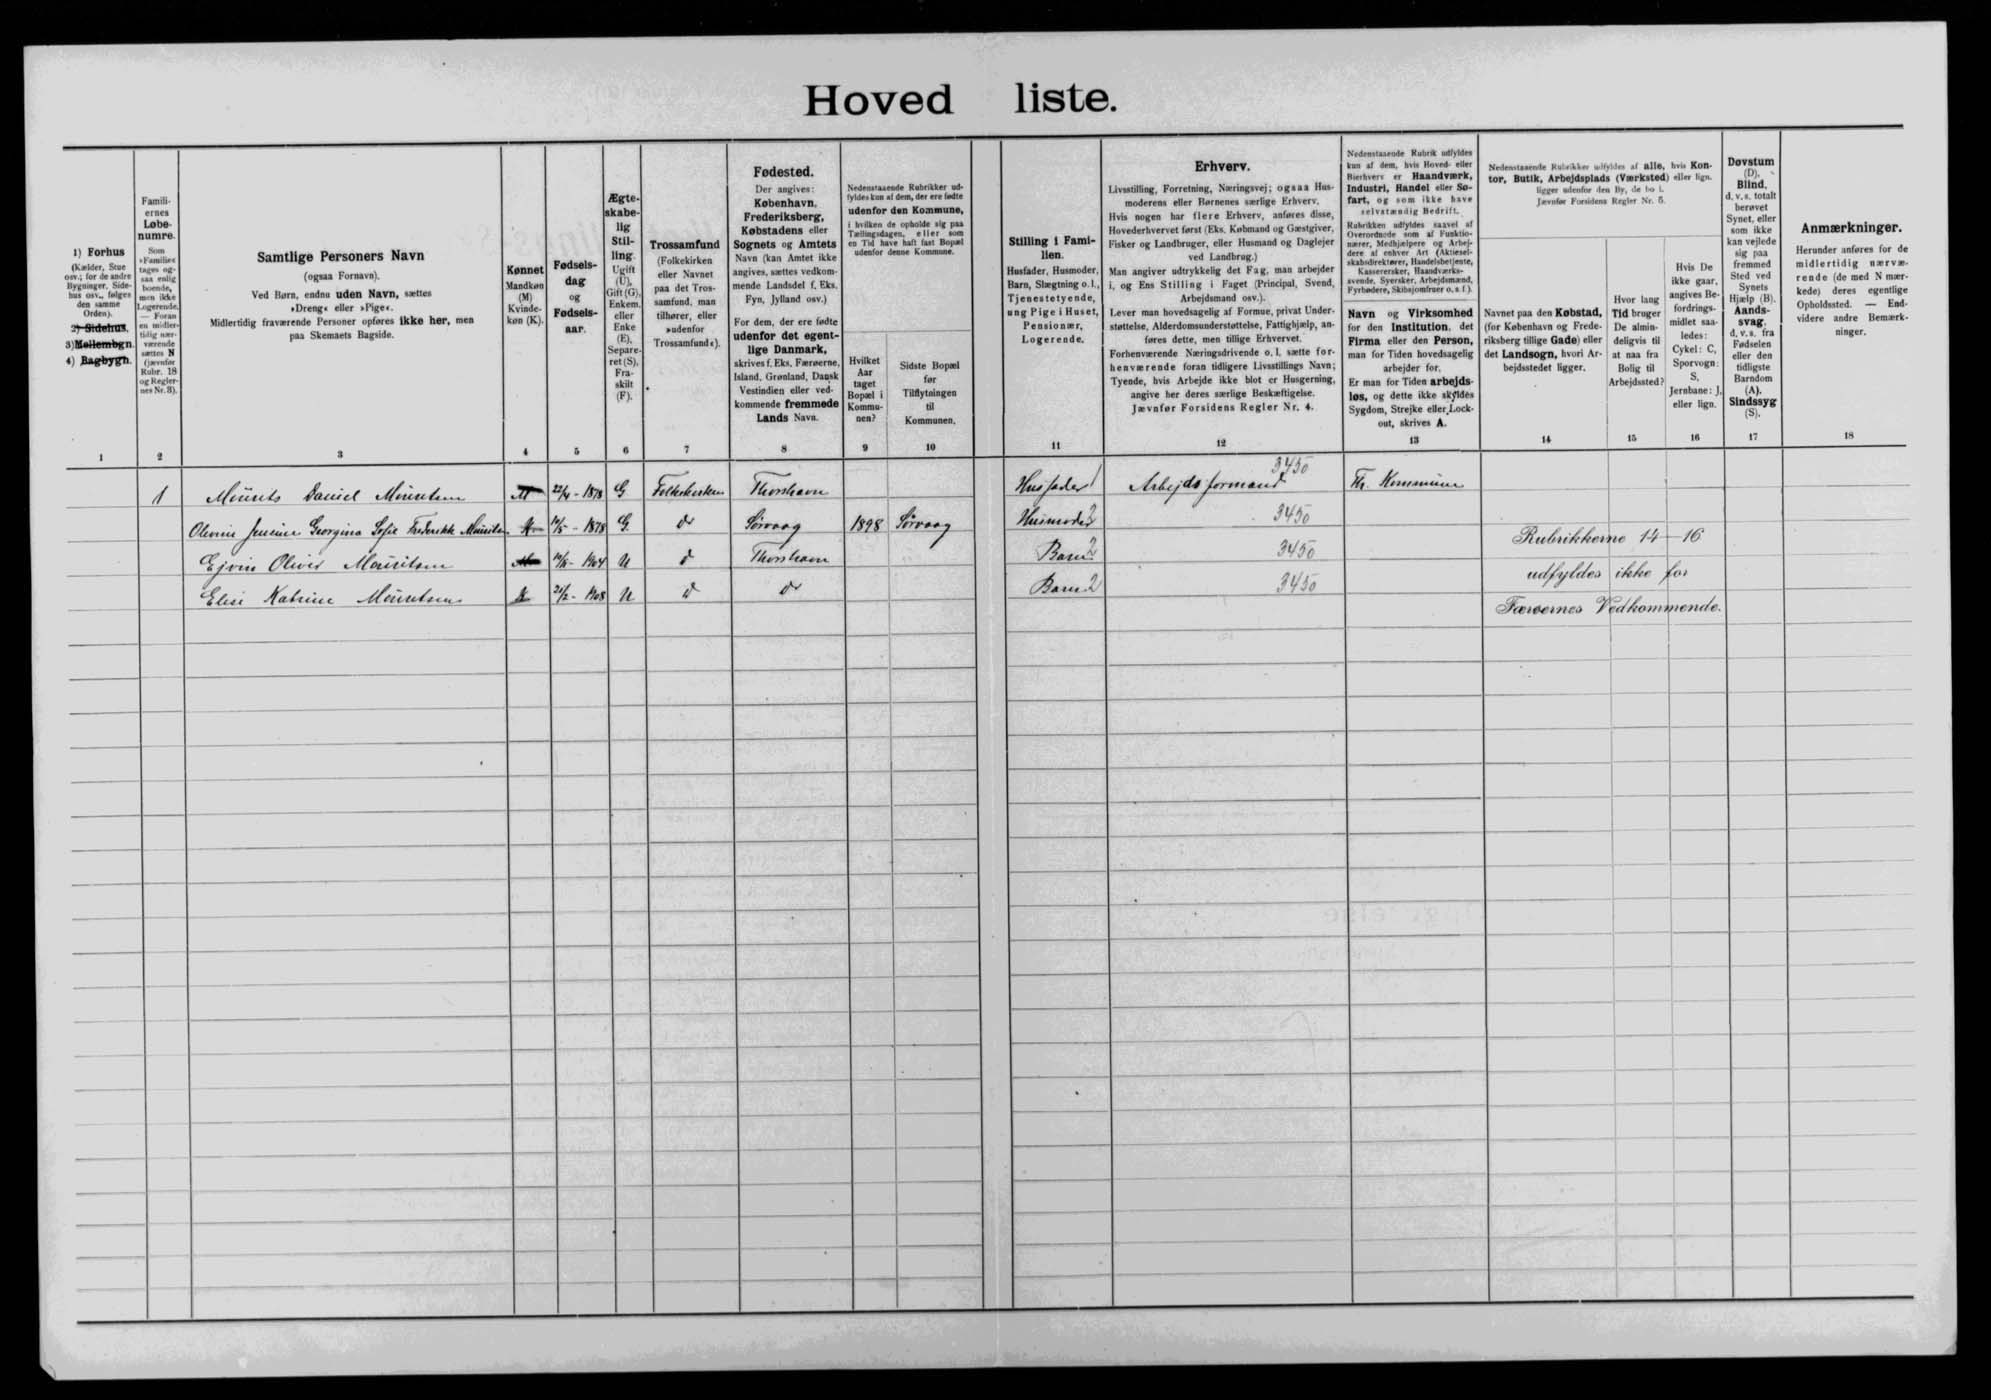 Hoved liste.
1) Forhus
(Kælder, Stue
osv.; for de andre
Bygninger, Side-
hus osv., følges
den samme
Orden).
2) Sidehus,
3) Mellembgn.
4) Bagbygn.
1
Famili-
ernes
Løbe-
numre.
Som
»Familie«
tages og-
saa enlig
boende,
men ikke
Logerende.
— Foran
en midler-
tidig nær-
værende
sættes N
(jævnfør
Rubr. 18
og Regler-
nes Nr. 3).
2
Samtlige Personers Navn
(ogsaa Fornavn).
Ved Børn, endnu uden Navn, sættes
»Dreng« eller »Pige«.
Midlertidig fraværende Personer opføres ikke her, men
paa Skemaets Bagside.
3
Kønnet
Mandkøn
(M)
Kvinde-
køn (K).
4
Fødsels-
dag
og
Fødsels-
aar.
5
Ægte-
skabe-
lig
Stil-
ling.
Ugift
(U),
Gift (G),
Enkem.
eller
Enke
(E),
Separe-
ret (S),
Fra-
skilt
(F).
6
Trossamfund
(Folkekirken
eller Navnet
paa det Tros-
samfund, man
tilhører, eller
»udenfor
Trossamfund«).
7
Fødested.
Der angives:
København,
Frederiksberg,
Købstadens eller
Sognets og Amtets
Navn (kan Amtet ikke
angives, sættes vedkom-
mende Landsdel f. Eks.
Fyn, Jylland osv.)
For dem, der ere fødte
udenfor det egent-
lige Danmark,
skrives f. Eks. Færøerne,
Island, Grønland, Dansk
Vestindien eller ved-
kommende fremmede
Lands Navn.
8
Nedenstaaende Rubrikker ud-
fyldes kun af dem, der ere fødte
udenfor den Kommune,
i hvilken de opholde sig paa
Tællingsdagen, eller som
en Tid have haft fast Bopæl
udenfor denne Kommune.
Hvilket
Aar
taget
Bopæl i
Kommu-
nen?
9
Sidste Bopæl
før
Tilflytningen
til
Kommunen.
10
Stilling i Fami-
lien.
Husfader, Husmoder,
Barn, Slægtning o. l.,
Tjenestetyende,
ung Pige i Huset,
Pensionær,
Logerende.
11
Erhverv.
Livsstilling, Forretning, Næringsvej; ogsaa Hus-
moderens eller Børnenes særlige Erhverv.
Hvis nogen har flere Erhverv, anføres disse,
Hovederhvervet først (Eks. Købmand og Gæstgiver,
Fisker og Landbruger, eller Husmand og Daglejer
ved Landbrug.)
Man angiver udtrykkelig det Fag, man arbejder
i, og Ens Stilling i Faget (Principal, Svend,
Arbejdsmand osv.).
Lever man hovedsagelig af Formue, privat Under-
støttelse, Alderdomsunderstøttelse, Fattighjælp, an-
føres dette, men tillige Erhvervet.
Forhenværende Næringsdrivende o. l. sætte for-
henværende foran tidligere Livsstillings Navn;
Tyende, hvis Arbejde ikke blot er Husgerning,
angive her deres særlige Beskæftigelse.
Jævnfør Forsidens Regler Nr. 4.
12
Nedenstaaende Rubrik udfyldes
kun af dem, hvis Hoved- eller
Bierhverv er Haandværk,
Industri, Handel eller Sø-
fart, og som ikke have
selvstændig Bedrift.
Rubrikken udfyldes saavel af
Overordnede som af Funktio-
nærer, Medhjælpere og Arbej-
dere af enhver Art (Aktiesel-
skabsdirektører, Handelsbetjente,
Kassererske, Haandværks-
svende, Syersker, Arbejdsmænd,
Fyrbødere, Skibsjomfruer o. s. f.).
Navn og Virksomhed
for den Institution, det
Firma eller den Person,
man for Tiden hovedsagelig
arbejder for.
Er man for Tiden arbejds-
løs, og dette ikke skyldes
Sygdom, Strejke eller Lock-
out, skrives A.
13
Nedenstaaende Rubrikker udfyldes af alle, hvis Kon-
tor, Butik, Arbejdsplads (Værksted) eller lign.
ligger udenfor den By, de bo i.
Jævnfør Forsidens Regler Nr. 5.
Navnet paa den Købstad,
(for København og Frede-
riksberg tillige Gade) eller
det Landsogn, hvori Ar-
bejdsstedet ligger.
14
Hvor lang
Tid bruger
De almin-
deligvis til
at naa fra
Bolig til
Arbejdssted?
15
Hvis De
ikke gaar,
angives Be-
fordrings-
midlet saa-
ledes:
Cykel: C,
Sporvogn:
S,
Jernbane: J,
eller lign.
16
Døvstum
(D),
Blind,
d. v. s. totalt
berøvet
Synet, eller
som ikke
kan vejlede
sig paa
fremmed
Sted ved
Synets
Hjælp (B).
Aands-
svag,
d. v. s. fra
Fødselen
eller den
tidligste
Barndom
(A).
Sindssyg
(S).
17
Anmærkninger.
Herunder anføres for de
midlertidig nærvæ-
rende (de med N mær-
kede) deres egentlige
Opholdssted. — End-
videre andre Bemærk-
ninger.
18
1 Mourits Daniel Mouritsen M 22/4 - 1878 G Folkekirken Thorshavn Husfader 1 Arbejdsformand 3450 Th. Kommune
Olevine Jensine Georgina Sofie Frederikke Mouritsen K 10/5 - 1878 G. do Sörvaag 1898 Sörvaag Husmoder 2 3450
Ejvin Oliver Mouritsen 1904 U d Thorshavn Barn 2 3450
Elise Katrine Mouritsen K 21/2 - 1908 U d do Barn 2 3450
Rubrikkerne 14-16
udfyldes ikke for
Færøernes Vedkommende.